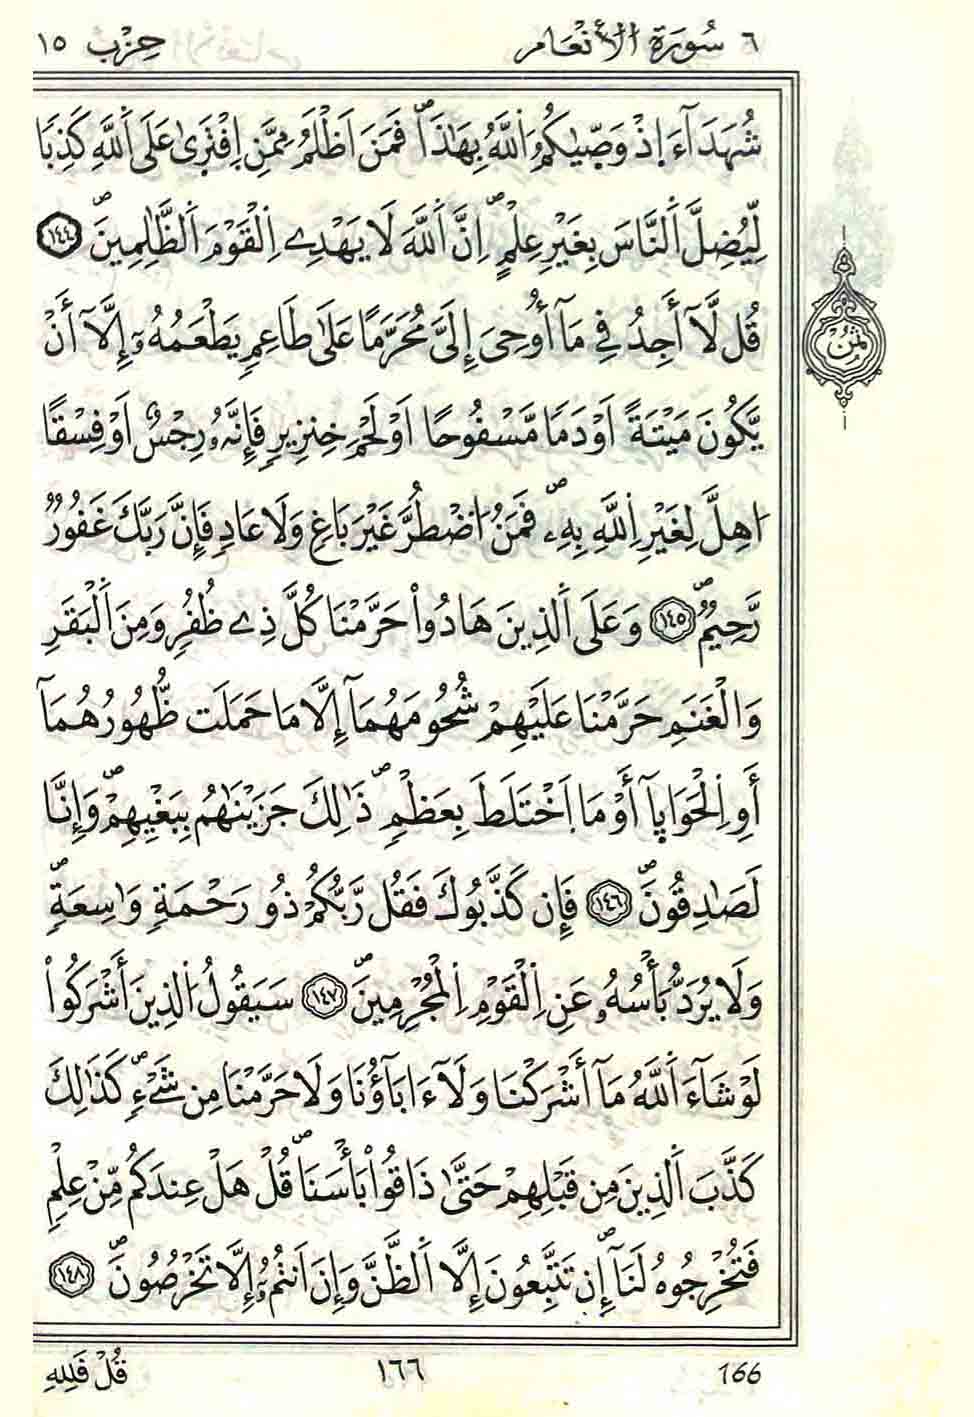 ٦ سُورَةُ الأَنْعَام حِزْب ١٥
شُهَدَآءَ اِذْ وَصّ۪يٰكُمُ اُ۬للَّهُ بِهَٰذَاۖ فَمَنَ اَظْلَمُ مِمَّنِ اِ۪فْتَر۪يٰ عَلَى اَ۬للَّهِ كَذِبًا
لِّيُضِلَّ اَ۬لنَّاسَ بِغَيْرِ عِلْمٍۖ اِنَّ اَ۬للَّهَ لَا يَهْدِے اِ۬لْقَوْمَ اَ۬لظَّٰلِمِينَۖ ١٤٤
قُل لَّآ أَجِدُ فِے مَآ أُوحِيَ إِلَيَّ مُحَرَّمًا عَلَىٰ طَاعِمٍ يَطْعَمُهُۥٓ إِلَّآ أَنْ
يَّكُونَ مَيْتَةً اَوْ دَمًا مَّسْفُوحًا اَوْ لَحْمَ خِنزِيرٍ فَإِنَّهُۥ رِجْسٌ اَوْ فِسْقًا
اُهِلَّ لِغَيْرِ اِ۬للَّهِ بِهِۦۖ فَمَنُ اُ۟ضْطُرَّ غَيْرَ بَاغٍ وَلَا عَادٍ فَإِنَّ رَبَّكَ غَفُورٌ
رَّحِيمٌۖ ١٤٥ وَعَلَى اَ۬لذِينَ هَادُواْ حَرَّمْنَا كُلَّ ذِے ظُفُرٍ وَمِنَ اَ۬لْبَقَرِ
وَالْغَنَمِ حَرَّمْنَا عَلَيْهِمْ شُحُومَهُمَآ إِلَّا مَا حَمَلَت ظُّهُورُهُمَآ
أَوِ اِ۬لْحَوَايَآ أَوْ مَا اَ۪خْتَلَطَ بِعَظْمٍۖ ذَٰلِكَ جَزَيْنَٰهُم بِبَغْيِهِمْۖ وَإِنَّا
لَصَٰدِقُونَۖ ١٤٦ فَإِن كَذَّبُوكَ فَقُل رَّبُّكُمْ ذُو رَحْمَةٍ وَٰسِعَةٍۖ
وَلَا يُرَدُّ بَأْسُهُۥ عَنِ اِ۬لْقَوْمِ اِ۬لْمُجْرِمِينَۖ ١٤٧ سَيَقُولُ اُ۬لذِينَ أَشْرَكُواْ
لَوْ شَآءَ اَ۬للَّهُ مَآ أَشْرَكْنَا وَلَآ ءَابَآؤُنَا وَلَا حَرَّمْنَا مِن شَےْءٍۖ كَذَٰلِكَ
كَذَّبَ اَ۬لذِينَ مِن قَبْلِهِمْ حَتَّىٰ ذَاقُواْ بَأْسَنَاۖ قُلْ هَلْ عِندَكُم مِّنْ عِلْمٍ
فَتُخْرِجُوهُ لَنَآۖ إِن تَتَّبِعُونَ إِلَّا اَ۬لظَّنَّ وَإِنَ اَنتُمُۥٓ إِلَّا تَخْرُصُونَۖ ١٤٨
ثُمُن
166 ١٦٦ قُلْ فَلِلهِ